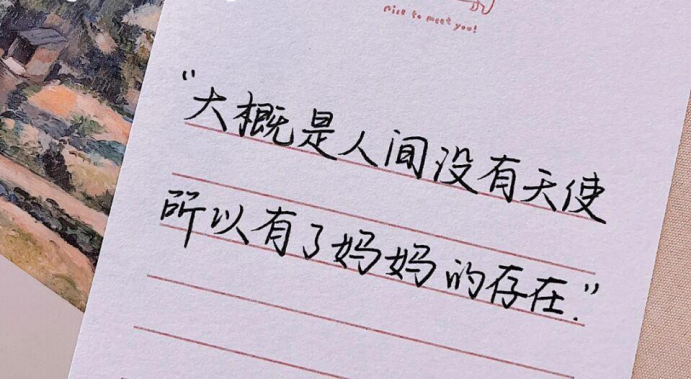 nice to meet you!
“大概是人间没有天使
所以有了妈妈的存在.”